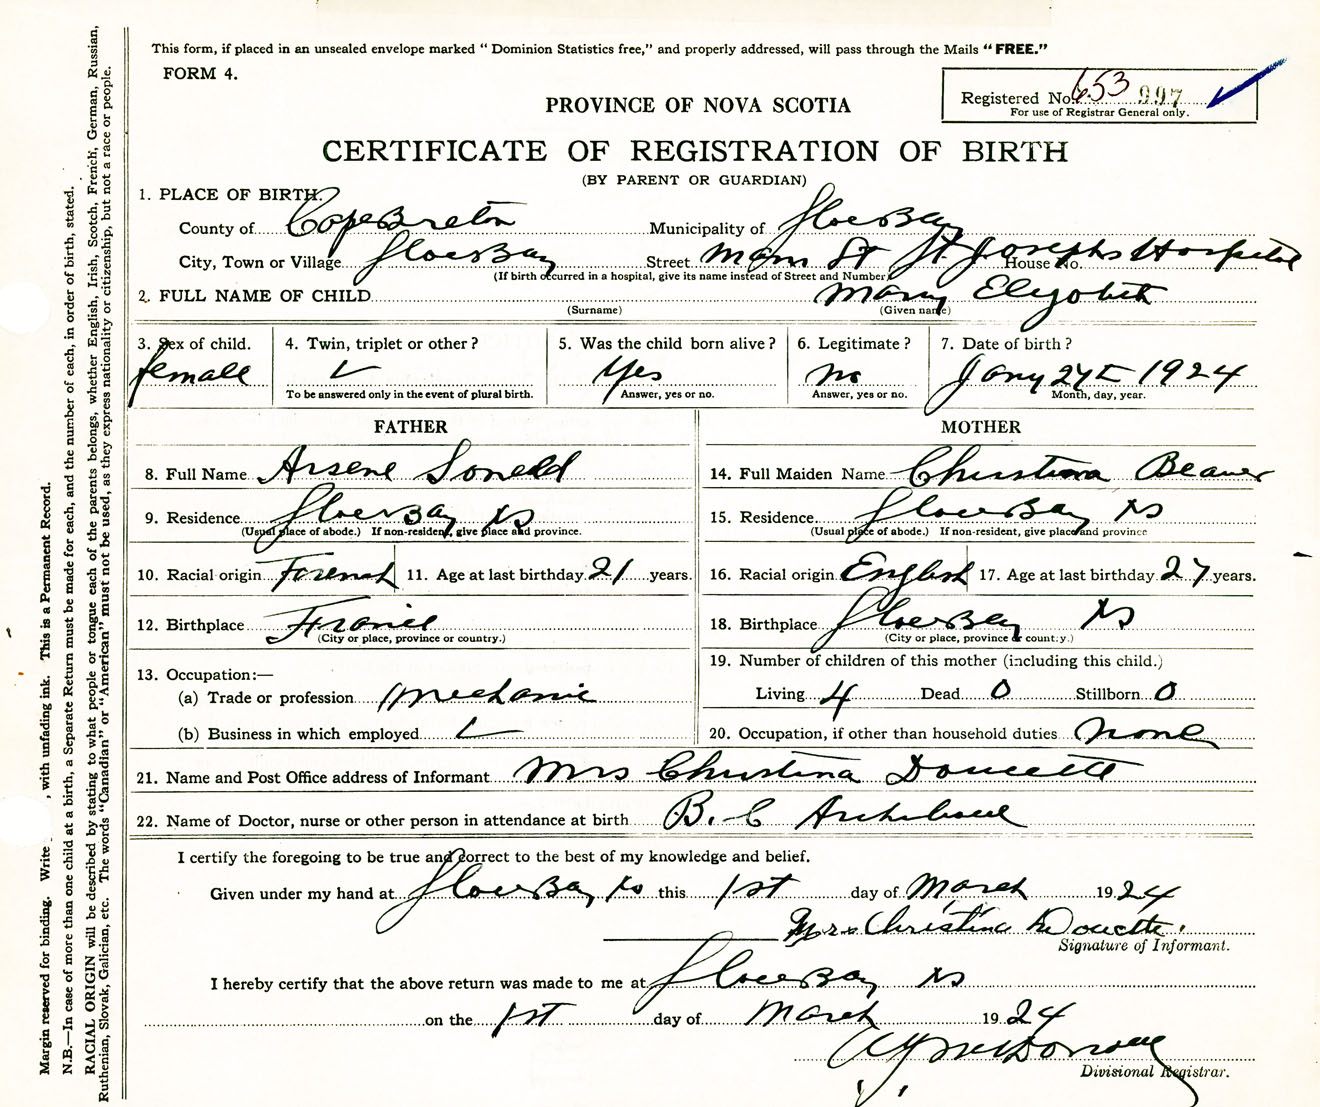 This form, if placed in an unsealed envelope marked “ Dominion Statistics free,” and properly addressed, will pass through the Mails “ FREE.”
FORM 4.
Registered No. 653 997
For use of Registrar General only.
PROVINCE OF NOVA SCOTIA
CERTIFICATE OF REGISTRATION OF BIRTH
(BY PARENT OR GUARDIAN)
1. PLACE OF BIRTH.
County of Cape Breton Municipality of Glace Bay
City, Town or Village Glace Bay Street Main St St. Josephs Hospital House No.
(If birth occurred in a hospital, give its name instead of Street and Number)
2. FULL NAME OF CHILD Mary Elizabeth
(Surname) (Given name)
3. Sex of child. 4. Twin, triplet or other ? 5. Was the child born alive ? 6. Legitimate ? 7. Date of birth ?
female Yes no Jany 24th 1924
To be answered only in the event of plural birth. Answer, yes or no. Answer, yes or no. Month, day, year.
FATHER
8. Full Name Arsene
9. Residence Glace Bay NS
(Usual place of abode.) If non-resident, give place and province.
10. Racial origin French 11. Age at last birthday 21 years.
12. Birthplace France
(City or place, province or country.)
13. Occupation:—
(a) Trade or profession Mechanic
(b) Business in which employed
MOTHER
14. Full Maiden Name Christina Beaver
15. Residence Glace Bay NS
(Usual place of abode.) If non-resident, give place and province
16. Racial origin English 17. Age at last birthday 27 years.
18. Birthplace Glace Bay NS
(City or place, province or country.)
19. Number of children of this mother (including this child.)
Living 4 Dead 0 Stillborn 0
20. Occupation, if other than household duties none
21. Name and Post Office address of Informant Mrs Christina Doucette
22. Name of Doctor, nurse or other person in attendance at birth B. C Archibald
I certify the foregoing to be true and correct to the best of my knowledge and belief.
Given under my hand at Glace Bay NS this 1st day of March 1924
Mrs Christina Doucette.
Signature of Informant.
I hereby certify that the above return was made to me at Glace Bay NS
on the 1st day of March 1924
Divisional Registrar.
Margin reserved for binding. Write , with unfading ink. This is a Permanent Record.
N.B.—In case of more than one child at a birth, a Separate Return must be made for each, and the number of each, in order of birth, stated.
RACIAL ORIGIN will be described by stating to what people or tongue each of the parents belongs, whether English, Irish, Scotch, French, German, Russian,
Ruthenian, Slovak, Galician, etc. The words “Canadian” or “American” must not be used, as they express nationality or citizenship, but not a race or people.